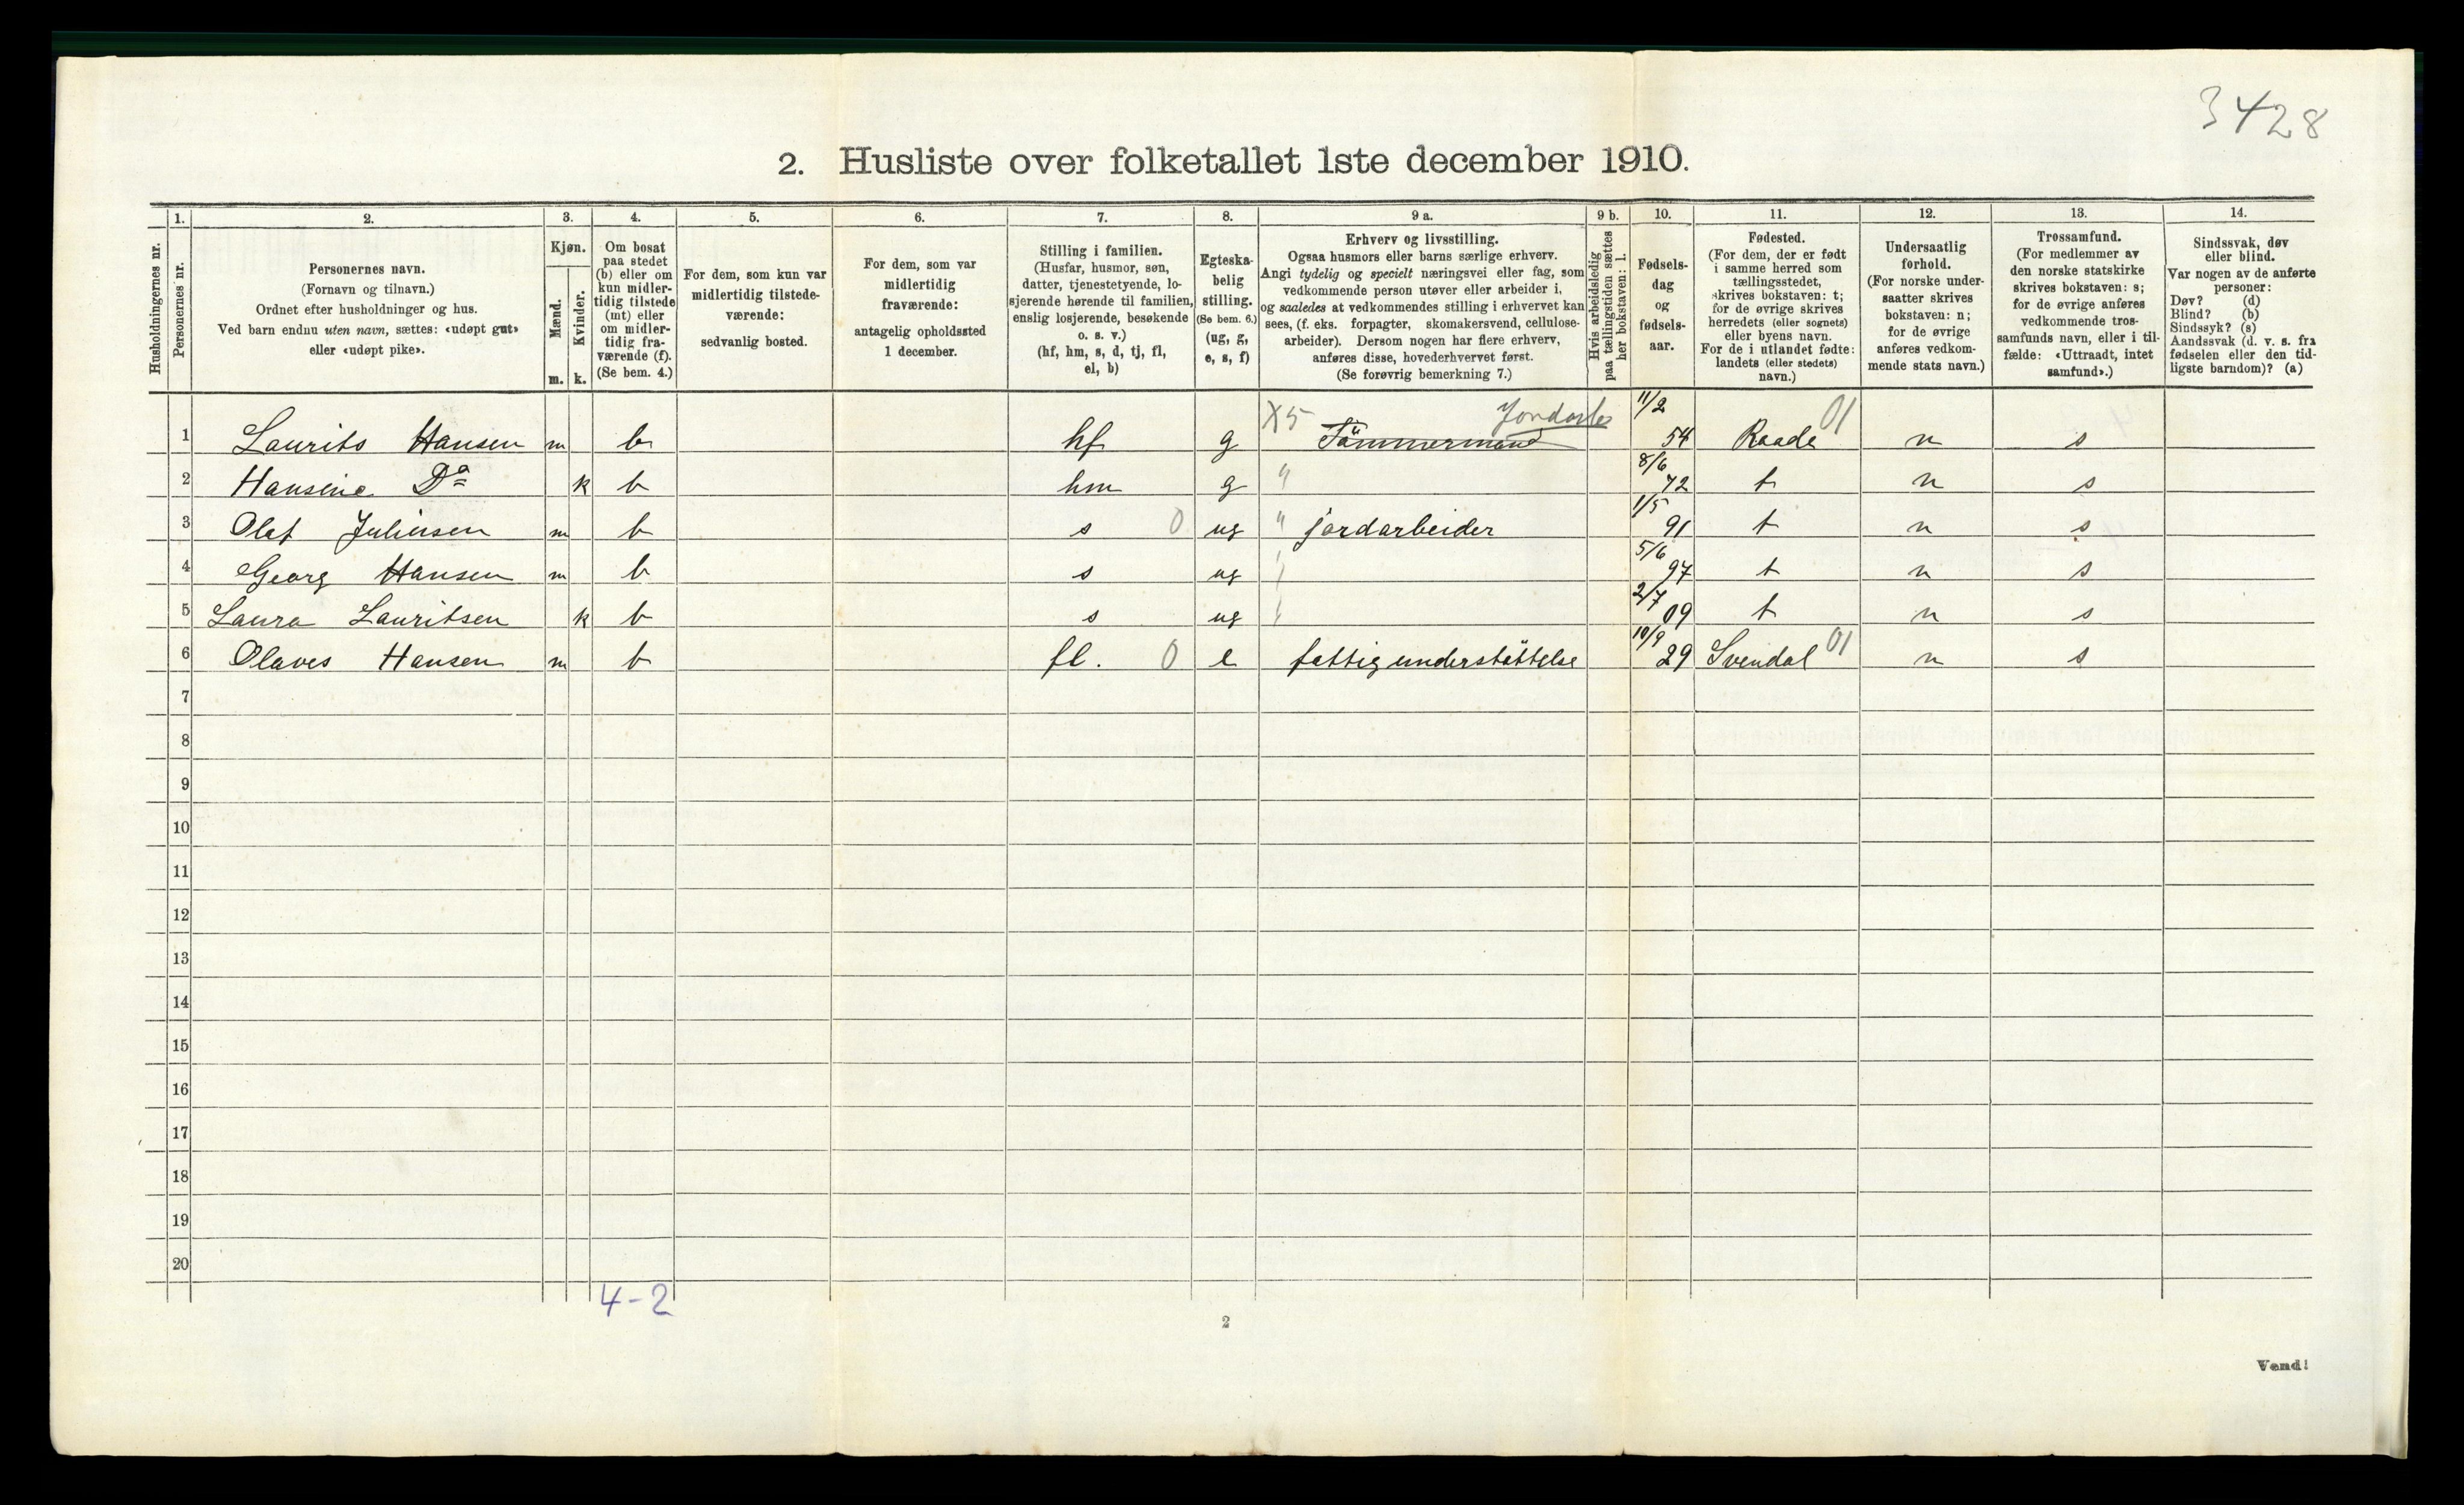 3428
2. Husliste over folketallet 1ste december 1910.
1. 2. 3. 4. 5. 6. 7. 8. 9 a. 9 b. 10. 11. 12. 13. 14.
Husholdningernes nr.
Personernes nr.
Personernes navn.
(Fornavn og tilnavn.)
Ordnet efter husholdninger og hus.
Ved barn endnu uten navn, sættes: «udøpt gut»
eller «udøpt pike».
Kjøn.
Mænd.
Kvinder.
m. k.
Om bosat
paa stedet
(b) eller om
kun midler-
tidig tilstede
(mt) eller
om midler-
tidig fra-
værende (f).
(Se bem. 4.)
For dem, som kun var
midlertidig tilstede-
værende:
sedvanlig bosted.
For dem, som var
midlertidig
fraværende:
antagelig opholdssted
1 december.
Stilling i familien.
(Husfar, husmor, søn,
datter, tjenestetyende, lo-
sjerende hørende til familien,
enslig losjerende, besøkende
o. s. v.)
(hf, hm, s, d, tj, fl,
el, b)
Egteska-
belig
stilling.
(Se bem. 6.)
(ug, g,
e, s, f)
Erhverv og livsstilling.
Ogsaa husmors eller barns særlige erhverv.
Angi tydelig og specielt næringsvei eller fag, som
vedkommende person utøver eller arbeider i,
og saaledes at vedkommendes stilling i erhvervet kan
sees, (f. eks. forpagter, skomakersvend, cellulose-
arbeider). Dersom nogen har flere erhverv,
anføres disse, hovederhvervet først.
(Se forøvrig bemerkning 7.)
Hvis arbeidsledig
paa tællingstiden sættes
her bokstaven: l.
Fødsels-
dag
og
fødsels-
aar.
Fødested.
(For dem, der er født
i samme herred som
tællingsstedet,
skrives bokstaven: t;
for de øvrige skrives
herredets (eller sognets)
eller byens navn.
For de i utlandet fødte:
landets (eller stedets)
navn.)
Undersaatlig
forhold.
(For norske under-
saatter skrives
bokstaven: n;
for de øvrige
anføres vedkom-
mende stats navn.)
Trossamfund.
(For medlemmer av
den norske statskirke
skrives bokstaven: s;
for de øvrige anføres
vedkommende tros-
samfunds navn, eller i til-
fælde: «Uttraadt, intet
samfund».)
Sindssvak, døv
eller blind.
Var nogen av de anførte
personer:
Døv? (d)
Blind? (b)
Sindssyk? (s)
Aandssvak (d. v. s. fra
fødselen eller den tid-
ligste barndom)? (a)
1 Laurits Hansen m b hf g X5 Tömmermand Jordarb 11/2 54 Raade 01 n s
2 Hansine Do k b hm g " 8/6 72 t n s
3 Olaf Juliusen m b s 0 ug " jordarbeider 1/5 91 t n s
4 Georg Hansen m b s ug " 5/6 97 t n s
5 Laura Lauritsen k b s ug " 2/7 09 t n s
6 Olaves Hansen m b fl. 0 e fattigunderstöttelse 10/9 29 Svendal 01 n s
7
8
9
10
11
12
13
14
15
16
17
18
19
20
4-2
2
Vend!